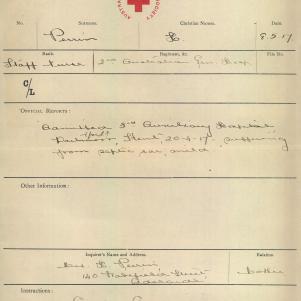 AUSTRA
SOCIETY
No. Surname. Christian Names. Date
Perrin L. 8.5.17
Rank. Regiment, &c. File No.
Staff Nurse 2nd Australian Gen. Hosp.
C/L
OFFICIAL REPORTS:
2nd Auxiliary Hospital
20-4-17. suffering
from septic ear, mild.
Other Information:
Inquirer's Name and Address. Relation
Mrs. L. Perrin Mother
140 Wakefield Street
Adelaide
Instructions: